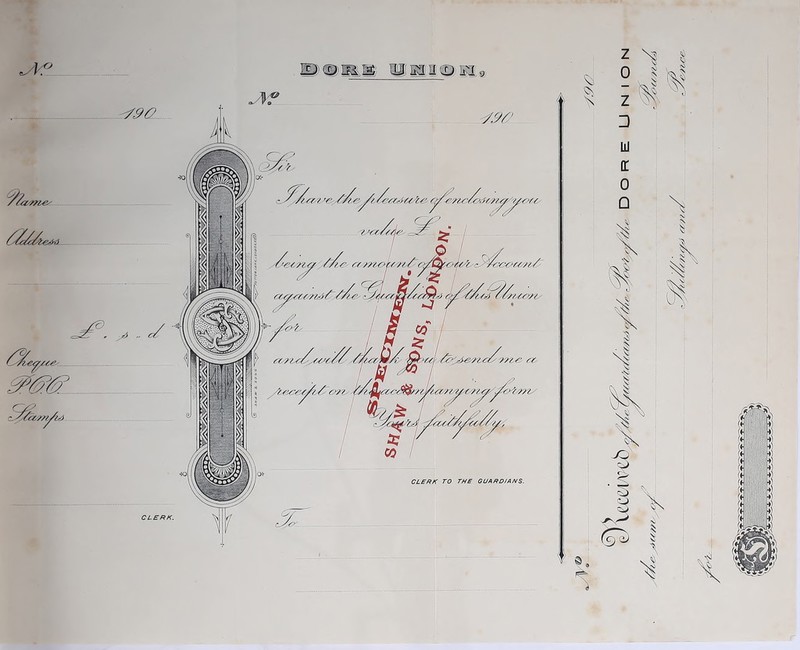 No
190
Name
Address
£ . s . d
Cheque
P.O.O.
Stamps
CLERK.
DORE UNION,
No
190
Sir
I have the pleasure of enclosing you
value £
being the amount of your Account
against the Guardians of this Union
for
and will thank you to send me a
receipt on the accompanying form
Yours faithfully,
CLERK TO THE GUARDIANS.
To
SPECIMEN.
SHAW & SONS, LONDON.
No
190
DORE UNION
Received of the Guardians of the Poor of the
Pounds
the sum of
Shillings and
Pence
for